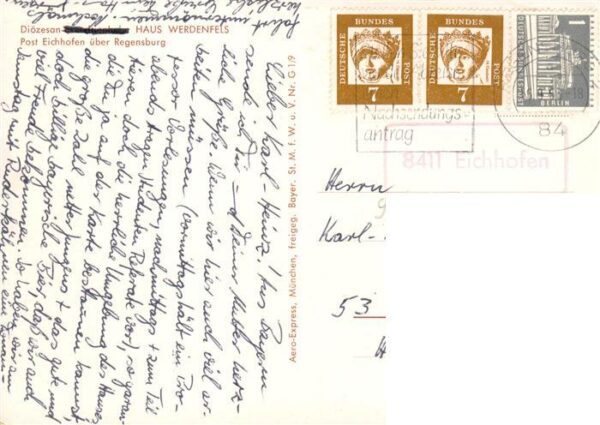 Diözesan- HAUS WERDENFELS
Post Eichhofen über Regensburg
Lieber Karl-Heinz! Aus Bayern
sende ich Dir und Deiner Mutter herz-
liche Grüße. Wenn wir hier auch viel ar-
beiten müssen (vormittags hält ein Pro-
fessor Vorlesungen, nachmittags + zum Teil
abends tragen Studenten Referate vor), so garan-
tieren doch die herrliche Umgebung des Hauses,
die Du ja auf der Karte bestaunen kannst,
die große Zahl netter Jungens + das gute und
doch billige bayrische Bier, daß wir auch
viel Freude bekommen. So haben wir am
Samstag mit Ruderkähnen eine Donau-
fahrt unternommen.
herzliche Grüße
Aero-Express, München, freigeg. Bayer. St. M. f. W. u. V. Nr. G 1/9
DEUTSCHE BUNDESPOST
7
DEUTSCHE BUNDESPOST
7
DEUTSCHE BUNDESPOST
1
BERLIN
Nachsendungs-
antrag
84
8411 Eichhofen
Herrn
Karl-
53